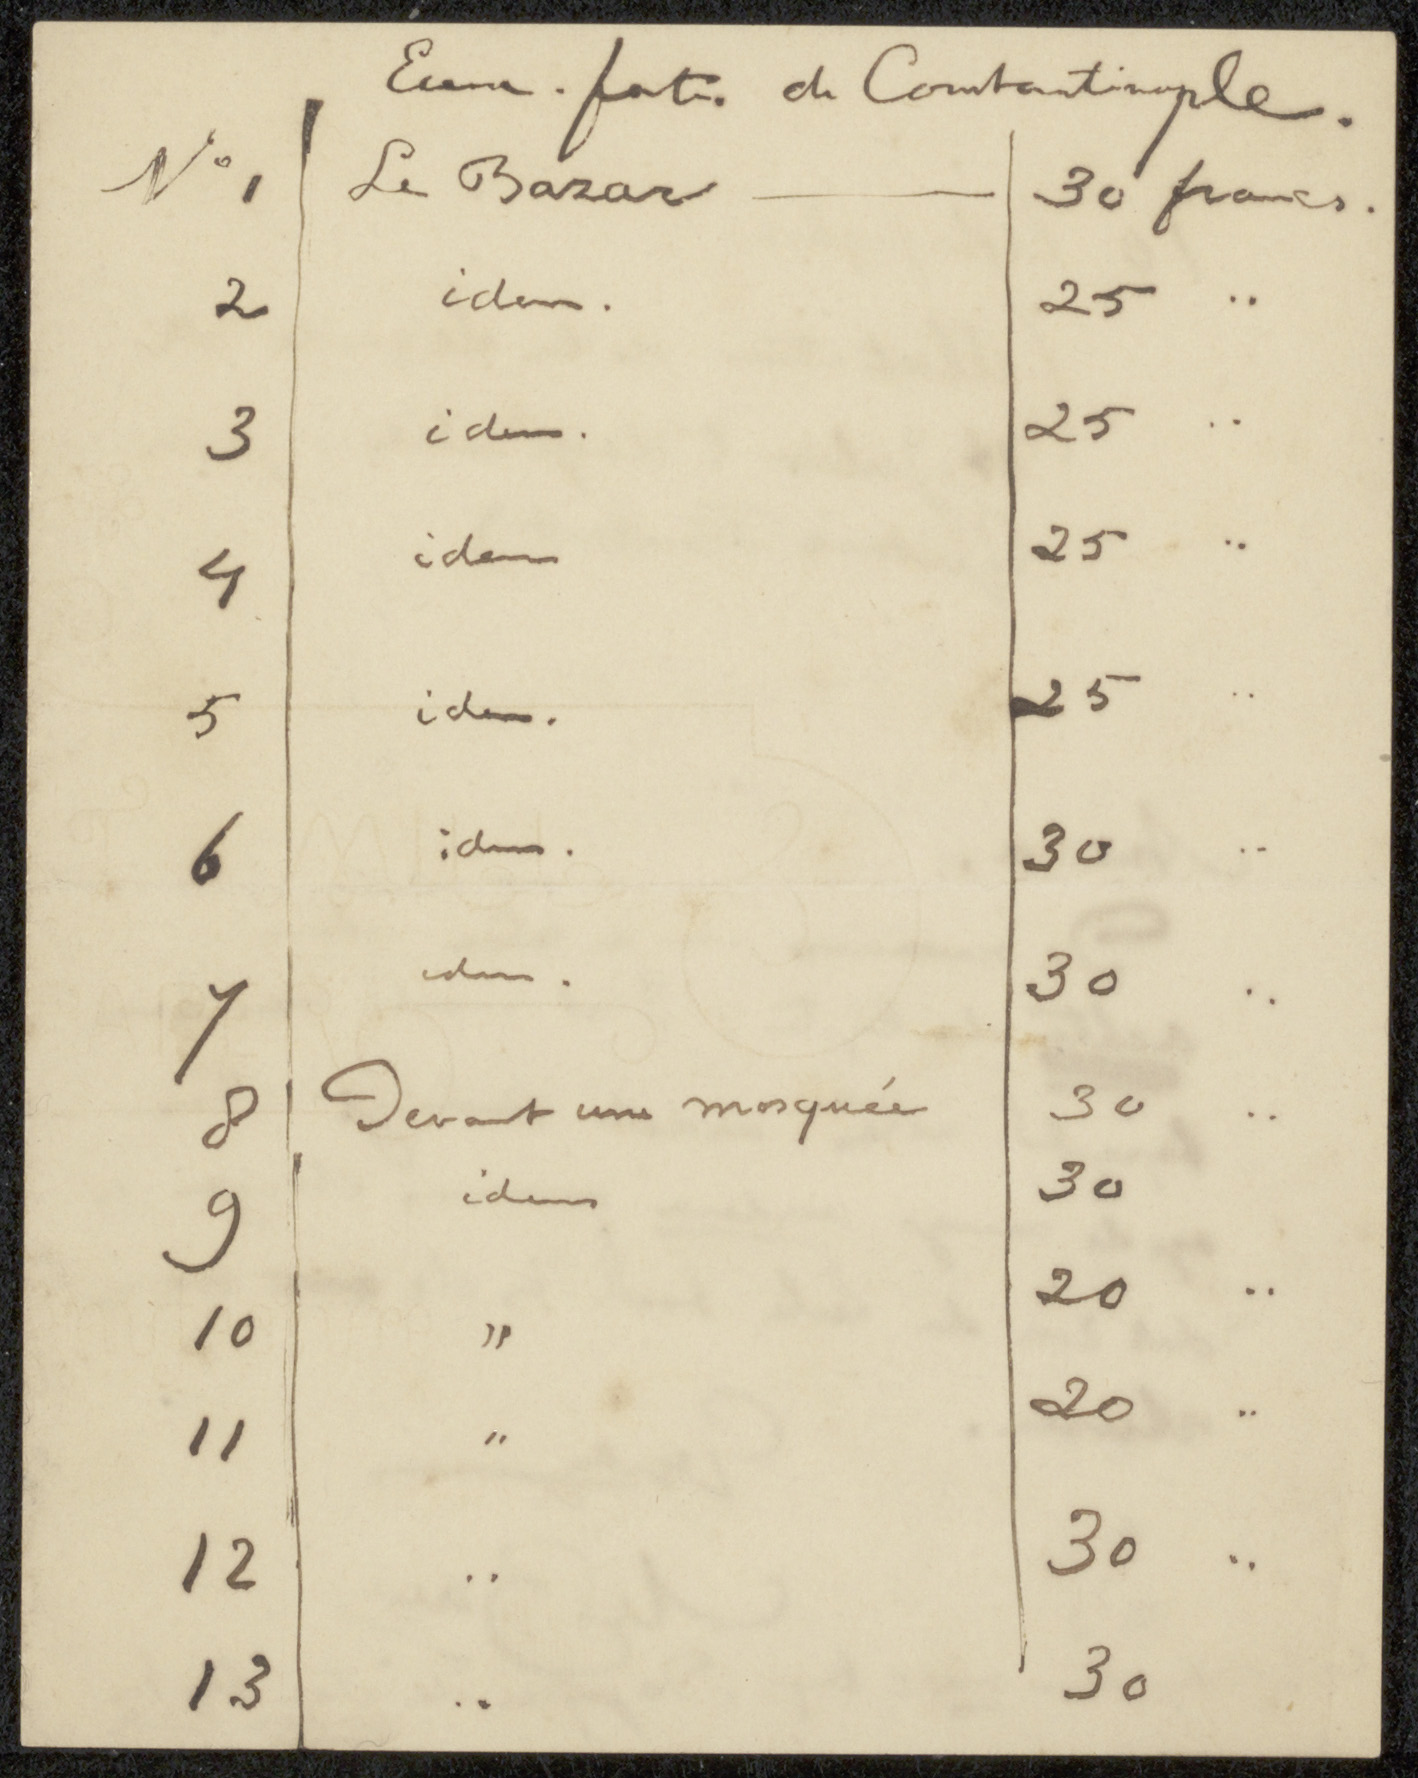 de Constantinople.
N° 1 Le Bazar — 30 francs.
2 idem. 25 ..
3 idem. 25 ..
4 idem 25 ..
5 idem. 25 ..
6 idem. 30 ..
7 idem. 30 ..
8 Devant une mosquée 30 ..
9 idem 30
10 " 20 ..
11 " 20 ..
12 .. 30 ..
13 .. 30